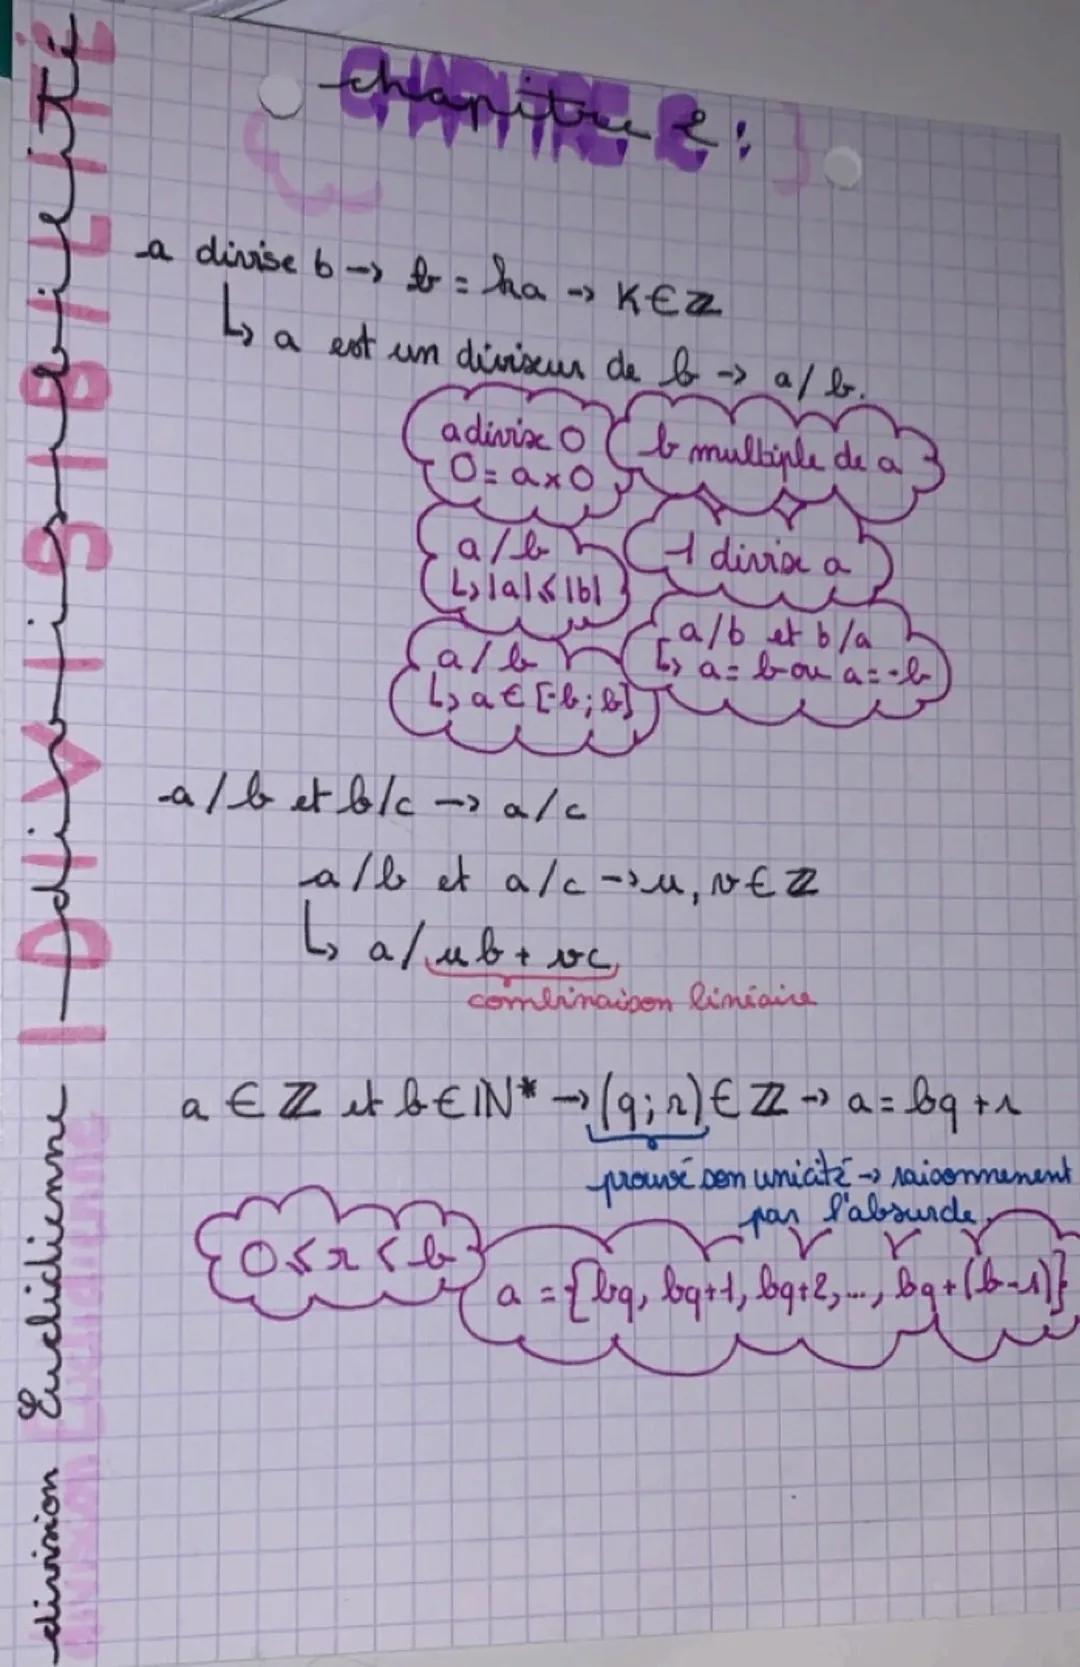 chapitre 2 :
I Divisibilité
a divise b → b = ka → K ∈ ℤ
↳ a est un diviseur de b → a/b.
a divise 0
0 = a x 0
b multiple de a
a/b
↳ |a| ⩽ |b|
1 divise a
a/b
↳ a ∈ [-b ; b]
a/b et b/a
↳ a = b ou a = -b
a/b et b/c → a/c
a/b et a/c → u, v ∈ ℤ
↳ a/ub + vc
combinaison linéaire
division Euclidienne
a ∈ ℤ et b ∈ ℕ* → (q ; r) ∈ ℤ → a = bq + r
prouvé son unicité → raisonnement
par l'absurde
0 ⩽ r < b
a = {bq, bq+1, bq+2, ..., bq+(b-1)}